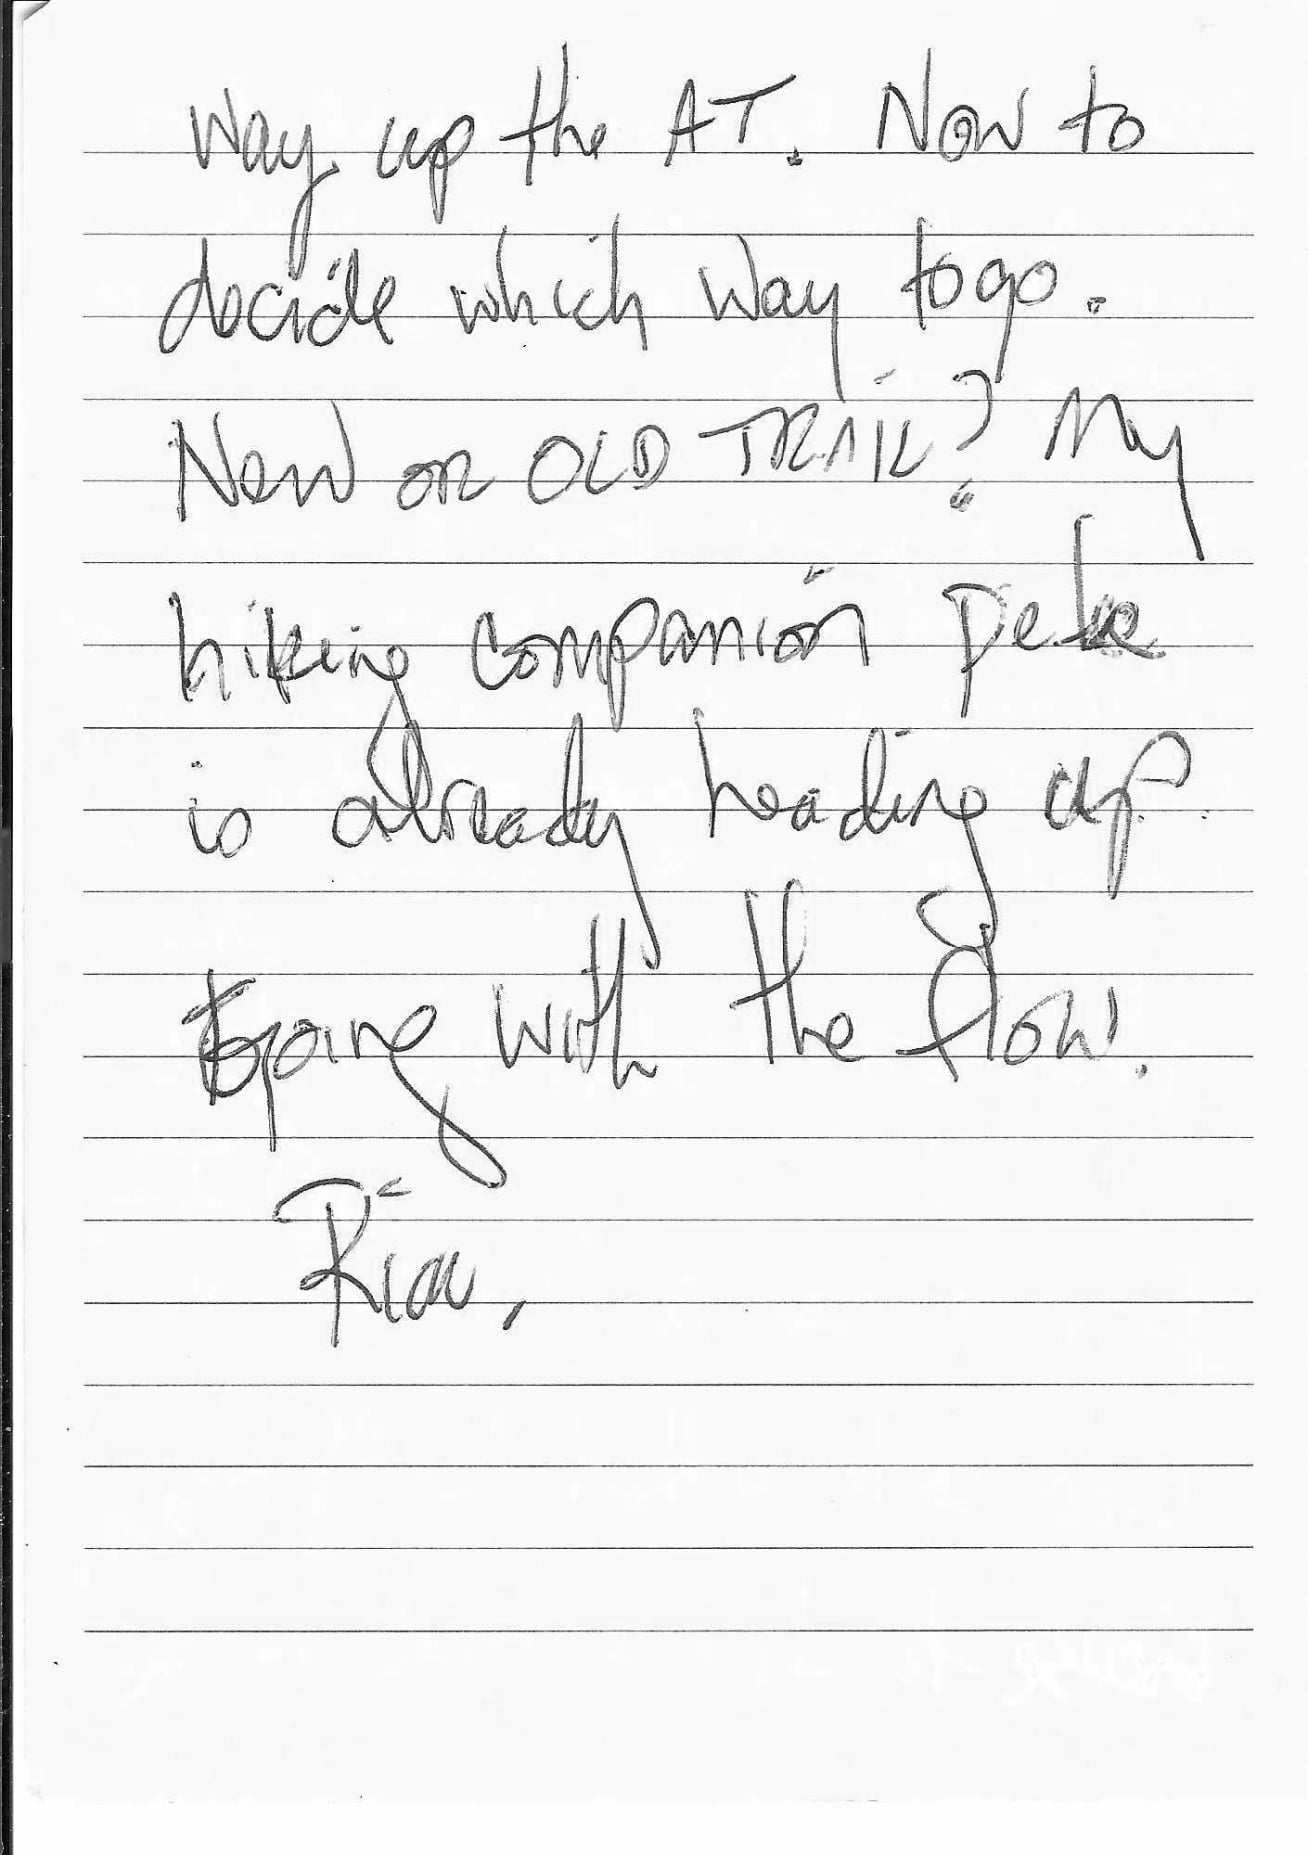 way up the AT. Now to
decide which way to go.
New OR OLD TRAIL? My
hiking companion Pete
is already heading up
going with the flow.